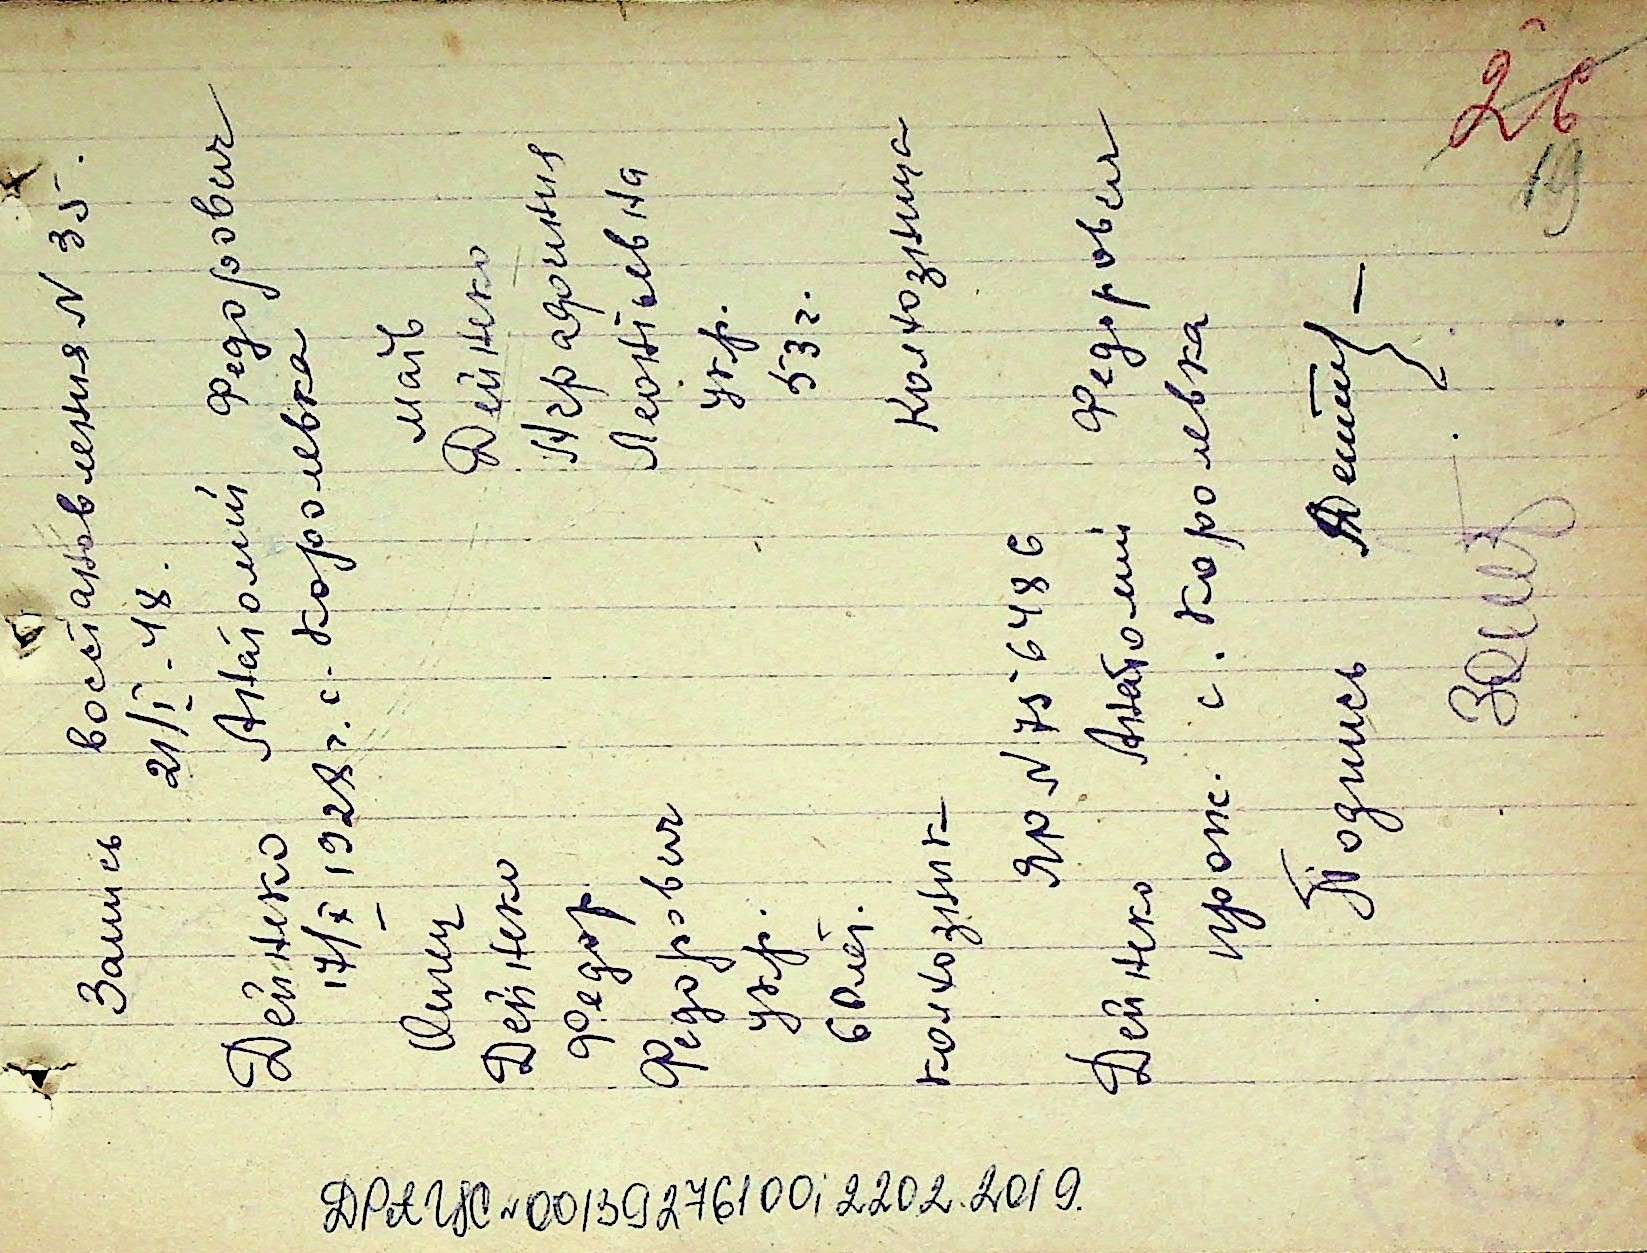 Запись востановления N 35.
21/I-48.
Дейнеко Анатолий Федорович
17/X 1928 г. с. Королевка
Отец мать
Дейнеко Дейнеко
Федор
Федорович Леонтьевна
укр. укр.
60 лет. 53 г.
колхозник Колхозница
ЯР N 756486
Дейнеко Анатолий Федорович
прож. с. Королевка
Подпись
26
19
ДРАЦС N 00139276100 i 22.02.2019.